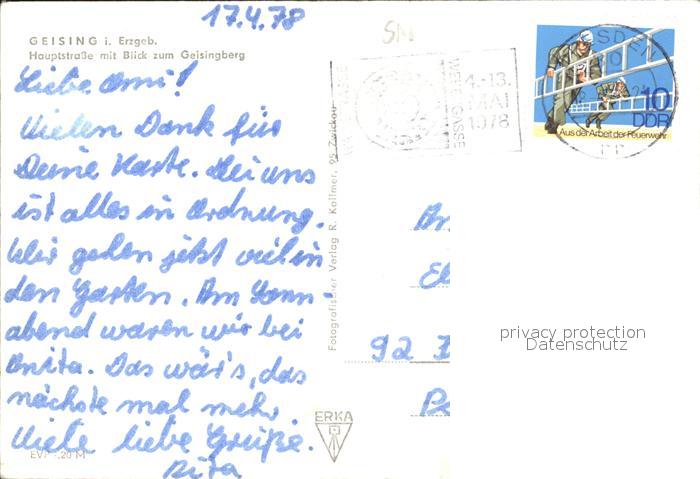 17.4.78
GEISING i. Erzgeb.
Hauptstraße mit Blick zum Geisingberg
Liebe Omi!
Vielen Dank für
Deine Karte. Bei uns
ist alles in Ordnung.
Wir gehen jetzt viel in
den Garten. Am Sonn-
abend waren wir bei
Anita. Das wär's, das
nächste mal mehr
Viele liebe Grüße.
Rita
EVP -,20 M
Fotografischer Verlag R. Kallmer, 95 Zwickau
ERKA
4.-13.
MAI
1978
10
DDR
Aus der Arbeit der Feuerwehr
92
privacy protection
Datenschutz